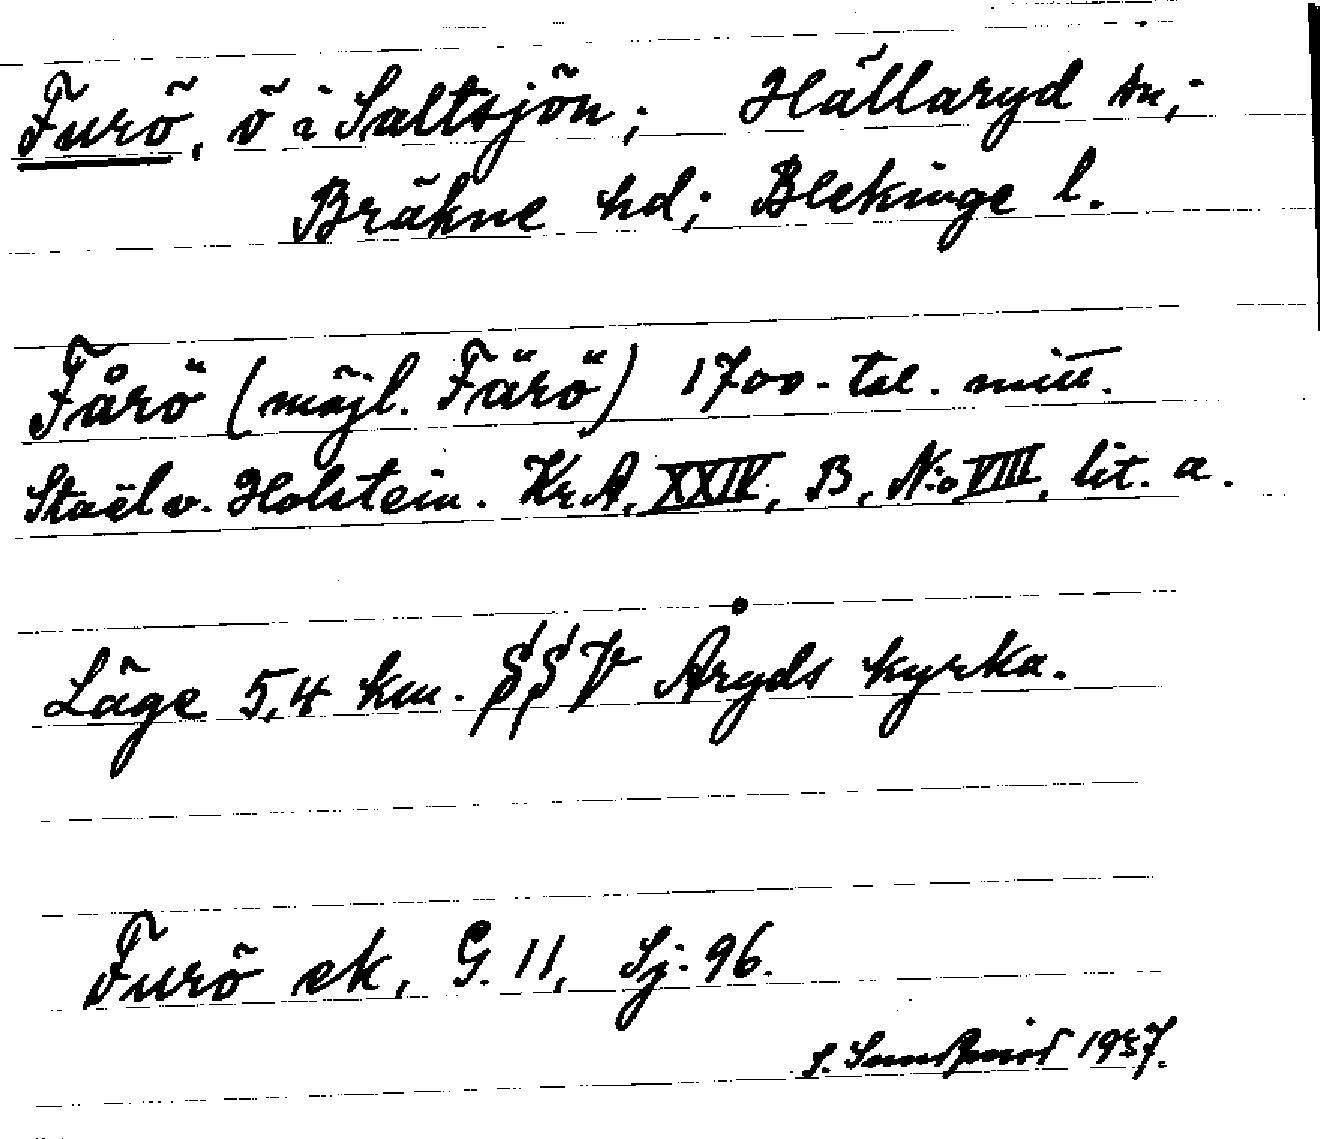 Furö, ö i Saltsjön; Hällaryd sn;
Bräkne hd; Blekinge l.
Fårö (möjl. Färö) 1700-tal. mitt.
Staël v. Holstein. Kr.A, XXIV, B, N:o VIII, lit. a.
Läge 5,4 km. SSV Åryds kyrka.
Furö ek, G. 11, Sj. 96.
S. 1957.